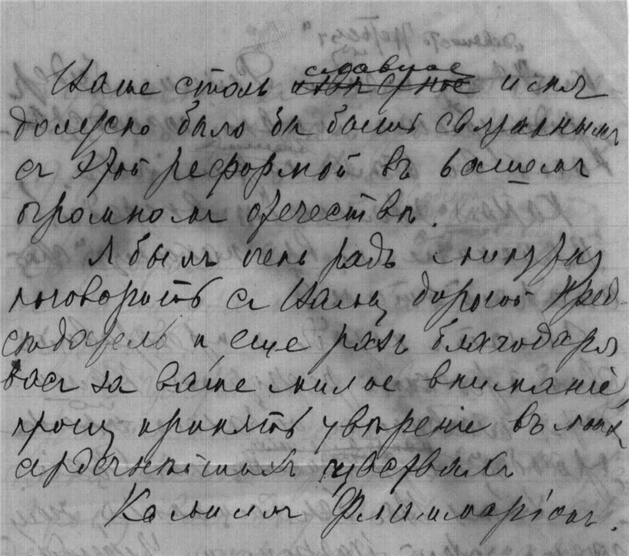 Ваше столь славное имя
должно было бы быть связаннымъ
съ этой реформой въ вашемъ
огромномъ отечествѣ.
Я былъ очень радъ
поговорить съ Вами, дорогой Пред-
сѣдатель и, еще разъ благодаря
васъ за ваше милое вниманіе,
прошу принять увѣреніе въ моихъ
чувствахъ
Камиллъ Фламмаріонъ.